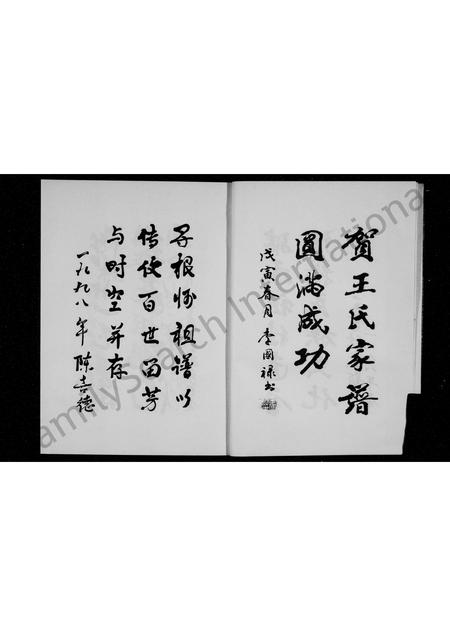 贺王氏家谱
圆满成功
戊寅春月 李国禄书
寻根修祖谱以
传后百世留芳
与时空并存
一九九八年 陈吉德
FamilySearch International